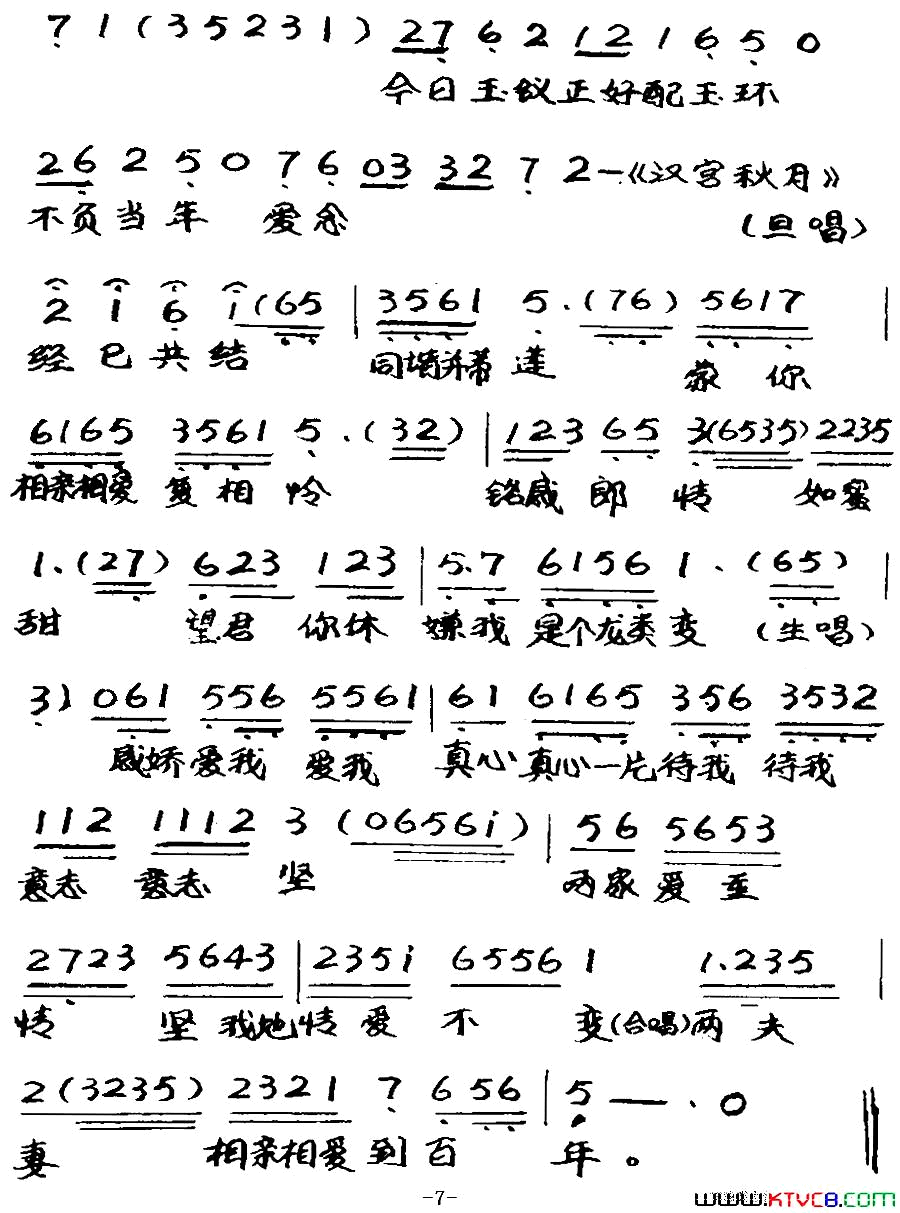 7 1 ( 3 5 2 3 1 ) 27 6 2 12 1 6 5 0
今日玉蚁正好配玉环
26 2 5 0 7 6 03 32 7 2 — 《汉宫秋月》
不负当年 爱念 (旦唱)
2 1 6 i (65 | 3561 5 . (76) 5617 |
经已共结 同墙并蒂莲 蒙你
6165 3561 5 . (32) | 123 65 3(6535) 2235
相亲相爱 复相怜 铭感郎情 如蜜
1 . (27) 623 123 | 5.7 6156 1 . (65) |
甜 望君 你休 嫌我 是个龙类变 (生唱)
3 ) 061 556 5561 | 61 6165 356 3532
感娇爱我 爱我 真心真心一片待我 待我
112 1112 3 (0656i) | 56 5653
意志 意志 坚 两家爱至
2723 5643 | 235i 6556 1 1.235 |
情 坚我她情爱不 变(合唱)两夫
2 (3235) 2321 7 656 | 5 — . 0
妻 相亲相爱到百 年。
-7-
www.KTVC8.com